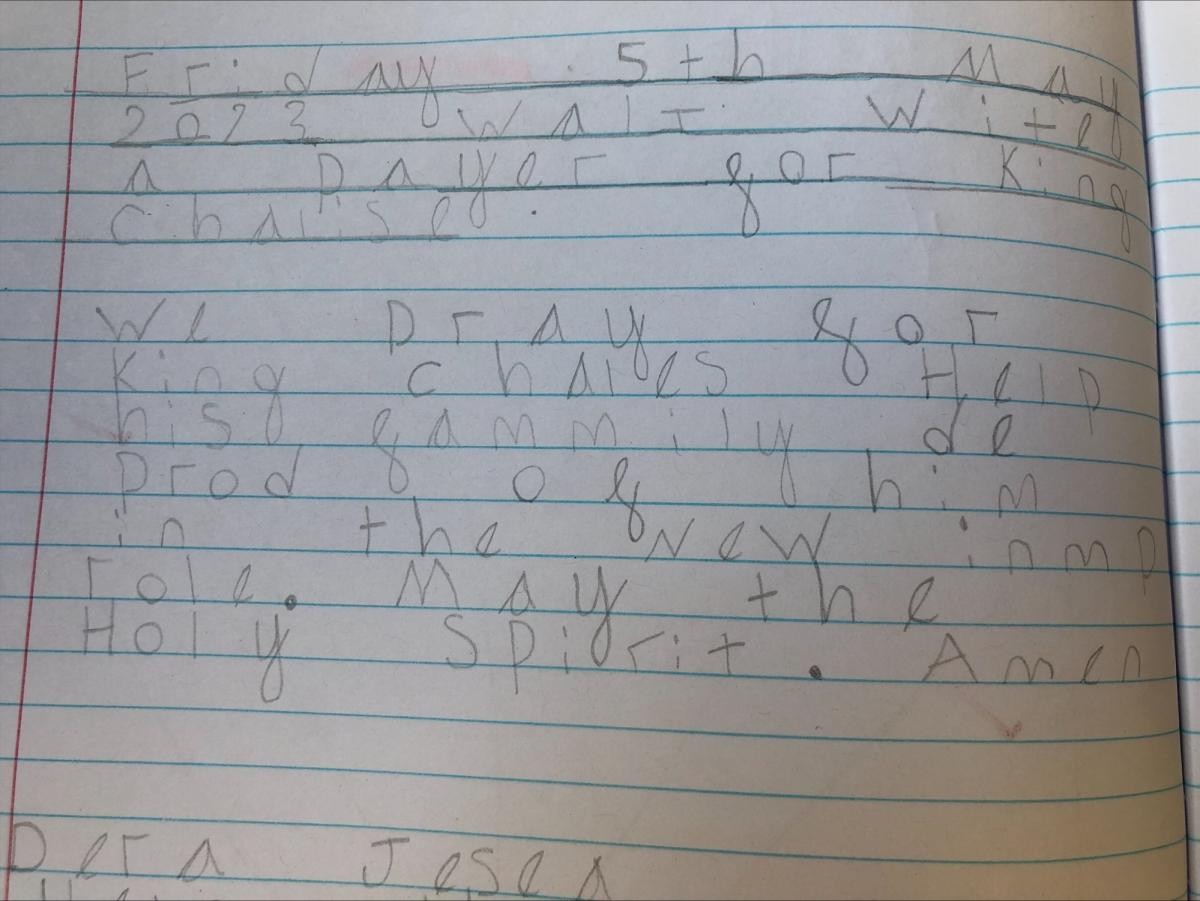 Friday 5th May
2023 WALT: Wite
a payer for King
Charlse.
We pray for
King Charles Help
his fammily de
prod of him
in the new inmp
role. May the
Holy Spirit. Amen
Dera Jesea